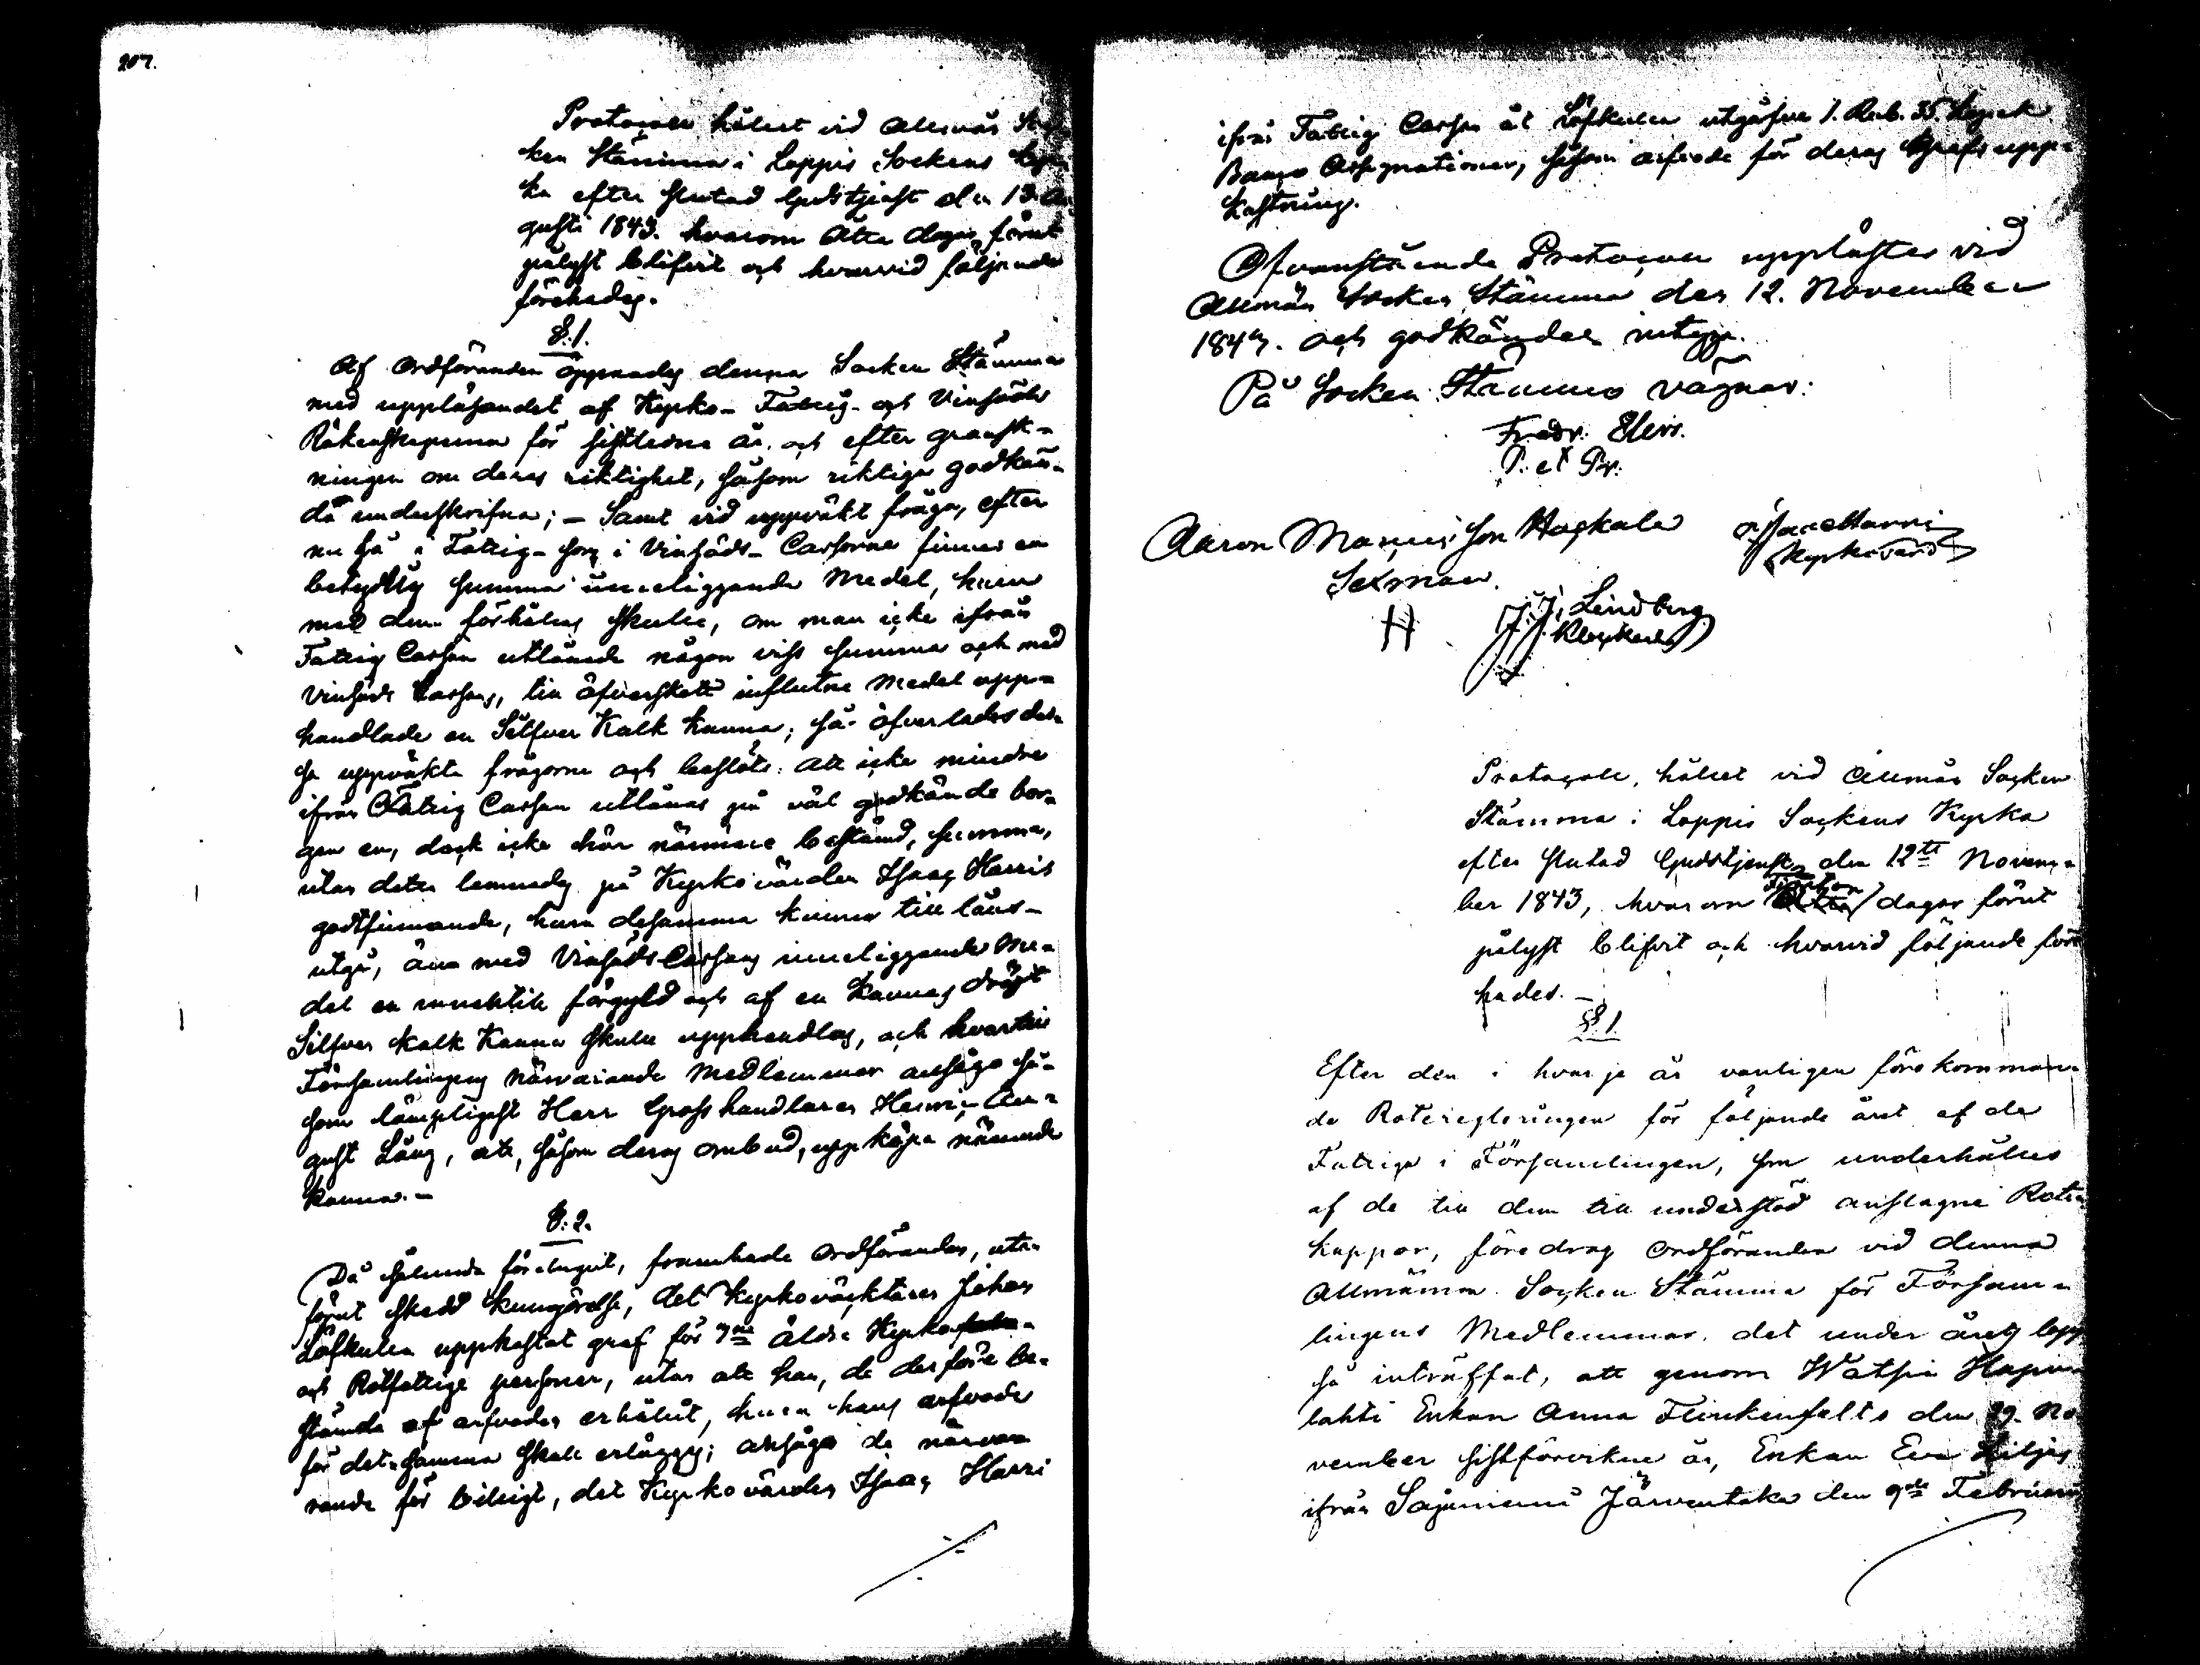 207.
Protocoll hållit vid Allmän Soc
ken Stämma i Loppis Sockens Kyr
ka efter slutad Gudstjenst den 13. Au
gusti 1843. hvarom Åtta dagar förut
pålyst blifvit och hvarvid följande
förehades.
§. 1.
Af Ordföranden öppnades denna Socken Stämma
med uppläsandet af Kyrko- Fattig- och Vinsäds
Räkenskaperna för sistledne år, och efter gransk-
ningen om deras riktighet, såsom riktiga godkän-
da underskrifna; - Samt vid uppväkt fråga, efter
nu så i Fattig- som i Vinsäds- Cassorne finnes en
betydlig summa inneliggande Medel, huru
med dem förhålas skulle, om man icke ifrån
Fattig Cassan utlånade någon viss summa och med
Vinsäds Cassans, till öfverskott influtne Medel upp-
handlade en Silfver Kalk Kanna; så öfverlades des-
sa uppväkta frågorna och beslöts: att icke mindre
ifrån Fattig Cassan utlånas på väl godkände bor-
gen en, dock icke här närmare bestämd, summa,
utan detta lemnades på Kyrkovärden Isaac Harris
godtfinnande, huru desamma kunna till låns-
utgå, än med Vinsäds Cassans inneliggande Me-
del en innuti förgyld och af en Kannas drägt
Silfver Kalk Kanna skulle upphandlas, och hvartill
Församlingens närvarande Medlemmar ansågo så-
som lämpligast Herr Grosshandlaren Henric Au-
gust Lång, att, såsom deras ombud, uppköpa nämnde
Kanna. -
§. 2.
Då sålunda föredragit, framhade Ordföranden, uta-
förut skedd kungörelse, det Kyrkoväcktaren Johan
Löfkulla uppkastat graf för 7 äldre Kyrko
och Rotfattige personer, utan att han, de derföre be-
stämde af arfvoden erhållit, huru hans arfvode
för det samma skall erläggas; ansågo de närva-
rande för billigt, det Kyrkovärden Isaac Harri
ifrån Fattig Cassan åt Löfkulla utgåfve 1. Rub. 35. Kopek
Banco Assignationer, såsom arfvode för deras Grafs upp-
kastning.
Ofvanstående Protocoll upplästes vid
Allmän Socken Stämma den 12. November
1843. och godkändes intyga.
På Socken Stämmo vägnar:
Fredr.
P. et Pr.
Aaron Mariæ Son Hackala
Sexman.
Isaac Harri
Kyrkovärd
H
J. J. Lindberg
Klockare
Protocoll, hållit vid Allmän Socken
Stämma i Loppis Sockens Kyrka
efter slutad Gudstjenst den 12te Novem-
ber 1843, hvarom Fjorton dagar förut
pålyst blifvit och hvarvid följande före
hades. -
§ 1.
Efter den i hvarje år vanligen förekomman-
de Roteregleringen för följande året af de
Fattiga i Församlingen, som underhålles
af de till dem till understöd anslagne Rote
kappor, föredrog Ordföranden vid denna
Allmänna Socken Stämma för Försam-
lingens Medlemmar, det under årets lopp
så inträffat, att genom Watsia Hapua
lahti Enkan Anna Flinkenfelts den 29. No
vember sistförvikne år, Enkan Eva Liljas
ifrån Sajaniemi Järventaka den 9de Februari